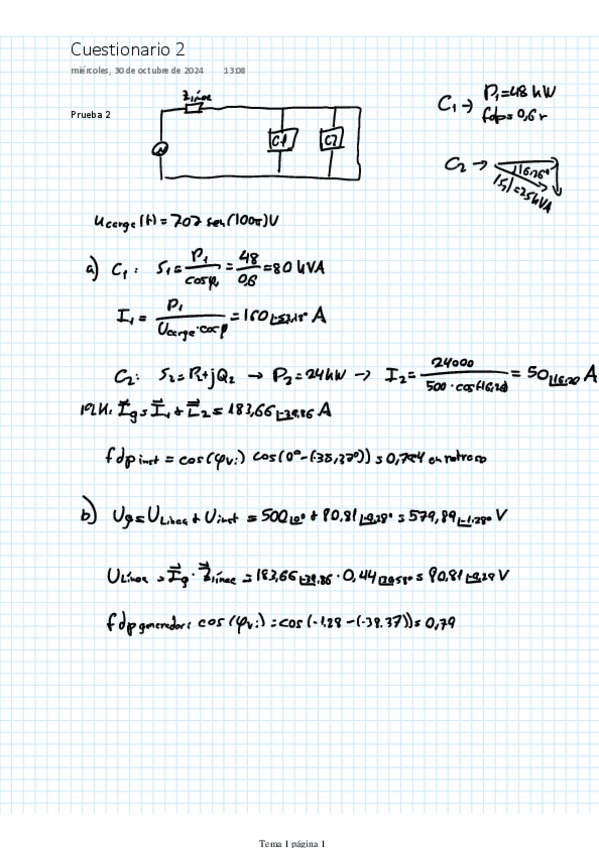 Cuestionario 2
miércoles, 30 de octubre de 2024 13:08
Prueba 2
Zlínea
C1 C2
C₁ → P₁=48 kW
fdp=0,6 r
C₂ → 16.26°
|S|=25kVA
Ucarga(t)= 707 sen(100π)V
a) C₁: S₁ = P₁/cosφ₁ = 48/0,6 = 80 kVA
I₁ = P₁/Ucarga·cosφ = 160 A
C₂: S₂=P₂+jQ₂ → P₂=24kW → I₂ = 24000/500·cos(-16,26) = 50∟-16.20 A
1ºLK: Ig = I₁ + I₂ = 183,66 A
fdp inst = cos(φv-i) cos(0°-(-38,37°)) = 0,784 en retraso
b) Ug = ULínea + Uinst = 500∟0° + 80,81∟-9,28° = 579,89∟-1.28° V
ULínea = Ig · Zlínea = 183,66 · 0,44 = 80,81∟-9,28 V
fdp generador: cos(φv-i) = cos(-1.28-(-38.37)) = 0,79
Tema 1 página 1